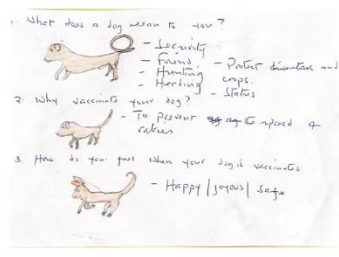 1. What does a dog mean to you?
- Security
- Friend
- Hunting
- Herding
- Protect livestock and
crops.
- Status
2. Why vaccinate your dog?
- To prevent spread of
rabies
3. How do you feel when your dog is vaccinated
- Happy / joyous / safe